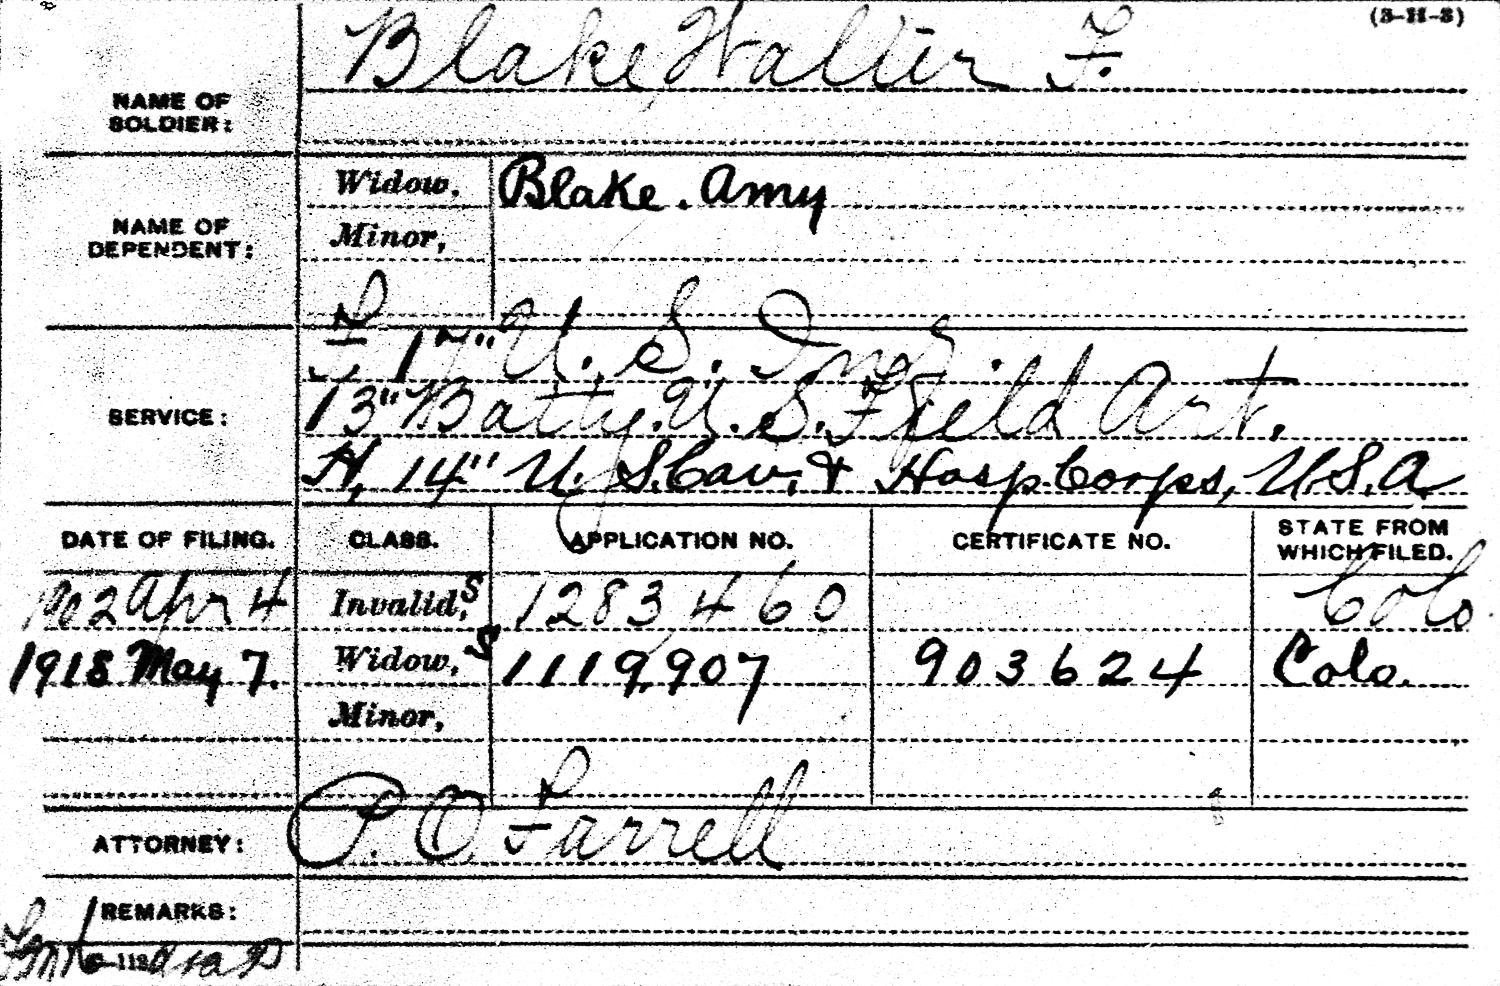 (3-H-3)
Blake Walter F.
NAME OF
SOLDIER:
NAME OF
DEPENDENT:
Widow, Blake. Amy
Minor,
SERVICE:
F, 17" U. S. Inf.
13" Batty. U. S. Field Art.
H, 14" U. S. Cav. & Hosp. Corps, U.S.A.
DATE OF FILING. CLASS. APPLICATION NO. CERTIFICATE NO. STATE FROM
WHICH FILED.
1902 Apr 4 Invalid, S 1283460 Colo
1918 May 7. Widow, S 1119,907 903624 Colo.
Minor,
ATTORNEY: P. O. Farrell
REMARKS: